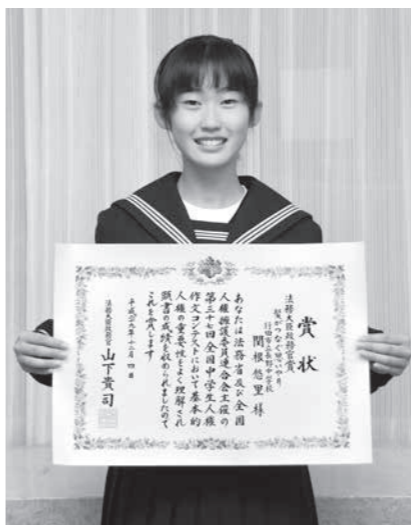 賞状
法務大臣政務官賞
髪がつなぐ思いやり
行田市立長野中学校
関根悠里様
あなたは法務省及び全国
人権擁護委員連合会主催の
第三十七回全国中学生人権
作文コンテストにおいて基本的
人権の重要性をよく理解され
頭書の成績を収められましたので
これを賞します
平成二十九年十二月四日
法務大臣政務官
山下貴司